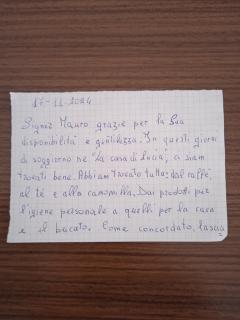 17-11-2024
Signor Mauro grazie per la Sua
disponibilità e gentilezza. In questi giorni
di soggiorno ne "La casa di Lucia", ci siam
trovati bene. Abbiam trovato tutto: dal caffè,
al tè e alla camomilla. Dai prodotti per
l'igiene personale a quelli per la casa
e il bucato. Come concordato, lascio